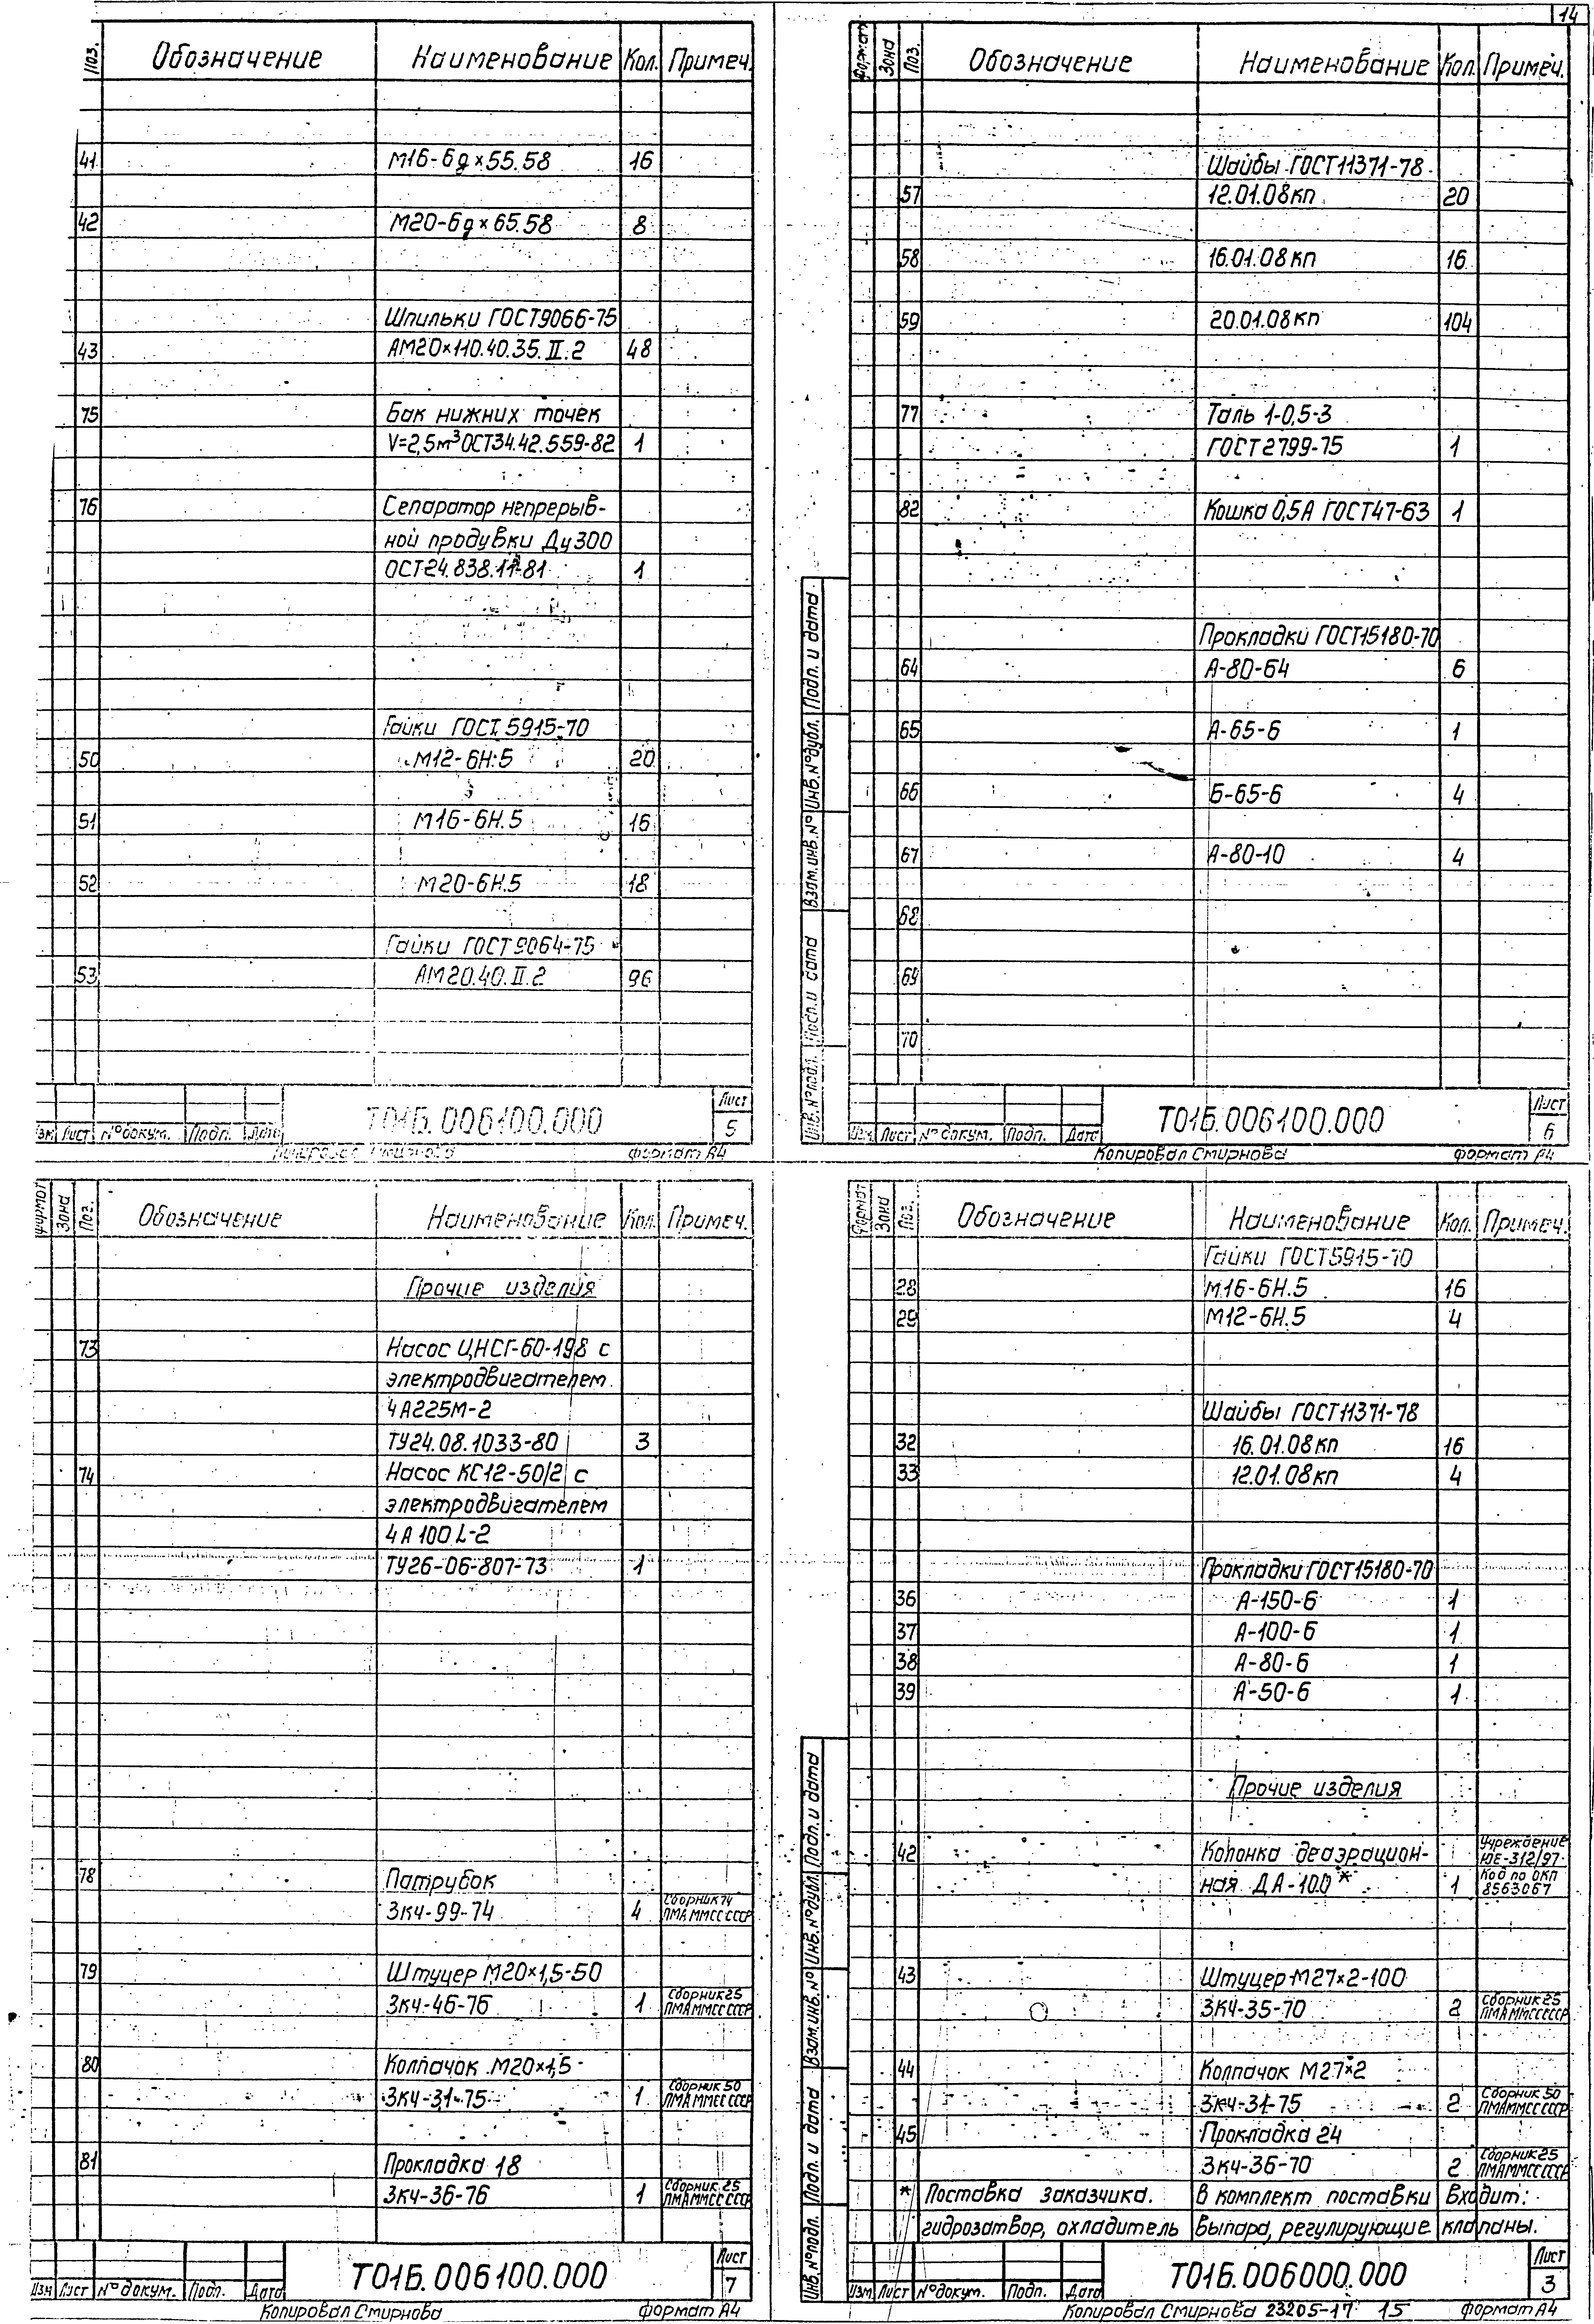 14
Поз. Обозначение Наименование Кол. Примеч.
41 М16-6g×55.58 16
42 М20-6g×65.58 8
Шпильки ГОСТ9066-75
43 АМ20×110.40.35.II.2 48
75 Бак нижних точек
V=2,5м³ ОСТ34.42.559-82 1
76 Сепаратор непрерыв-
ной продувки Ду300
ОСТ24.838.11-81 1
Гайки ГОСТ 5915-70
50 М12-6Н.5 20
51 М16-6Н.5 16
52 М20-6Н.5 18
Гайки ГОСТ9064-75
53 АМ20.40.II.2 96
Изм Лист №докум. Подп. Дата
Т01Б.006100.000
Лист
5
Копировал Смирнова формат А4
Формат Зона Поз. Обозначение Наименование Кол. Примеч.
Шайбы ГОСТ11371-78
57 12.01.08кп 20
58 16.01.08кп 16
59 20.01.08кп 104
77 Таль 1-0,5-3
ГОСТ2799-75 1
82 Кошка 0,5А ГОСТ47-63 1
Прокладки ГОСТ15180-70
64 А-80-64 6
65 А-65-6 1
66 Б-65-6 4
67 А-80-10 4
68
69
70
Инв.№подл. Подп. и дата Взам.инв.№ Инв.№дубл. Подп. и дата
Изм. Лист №докум. Подп. Дата
Т01Б.006100.000
Лист
6
Копировал Смирнова формат А4
Формат Зона Поз. Обозначение Наименование Кол. Примеч.
Прочие изделия
73 Насос ЦНСГ-60-198 с
электродвигателем
4А225М-2
ТУ24.08.1033-80 3
74 Насос КС12-50/2 с
электродвигателем
4А100L-2
ТУ26-06-807-73 1
78 Патрубок
3К4-99-74 4 Сборник 74 ПМА ММСС СССР
79 Штуцер М20×1,5-50
3К4-46-76 1 Сборник25 ПМАММСС СССР
80 Колпачок М20×1,5
3К4-31-75 1 Сборник 50 ПМА ММСС СССР
81 Прокладка 18
3К4-36-76 1 Сборник 25 ПМАММСС СССР
Изм Лист №докум. Подп. Дата
Т01Б.006100.000
Лист
7
Копировал Смирнова формат А4
Формат Зона Поз. Обозначение Наименование Кол. Примеч.
Гайки ГОСТ5915-70
28 М16-6Н.5 16
29 М12-6Н.5 4
Шайбы ГОСТ11371-78
32 16.01.08кп 16
33 12.01.08кп 4
Прокладки ГОСТ15180-70
36 А-150-6 1
37 А-100-6 1
38 А-80-6 1
39 А-50-6 1
Прочие изделия
42 Колонка деаэрацион- Учреждение ЮЕ-312/97
ная ДА-100* 1 Код по ОКП 8563067
43 Штуцер М27×2-100
3К4-35-70 2 Сборник25 ПМАММСС СССР
44 Колпачок М27×2
3К4-31-75 2 Сборник 50 ПМАММСС СССР
45 Прокладка 24
3К4-36-70 2 Сборник25 ПМАММСС СССР
* Поставка заказчика. В комплект поставки входит:
гидрозатвор, охладитель выпара, регулирующие клапаны.
Инв.№подл. Подп. и дата Взам.инв.№ Инв.№дубл. Подп. и дата
Изм. Лист №докум. Подп. Дата
Т01Б.006000.000
Лист
3
Копировал Смирнова 23205-17 15 формат А4